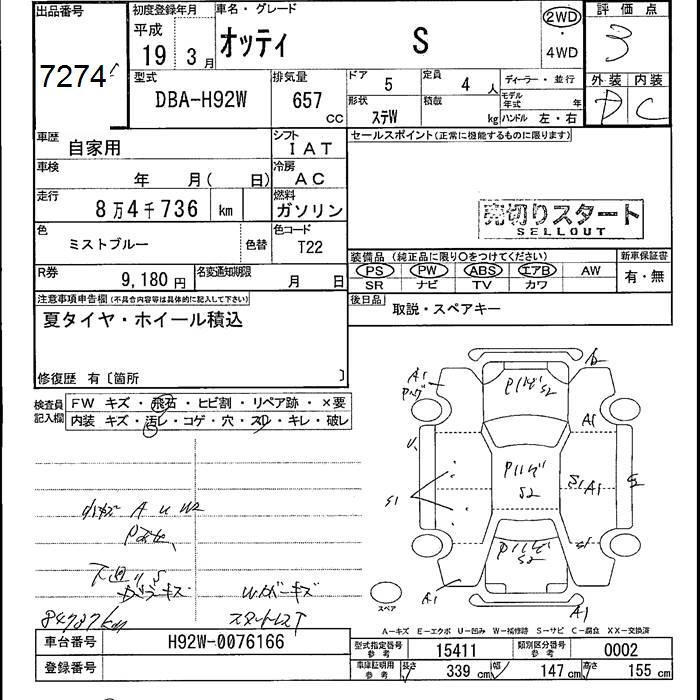 出品番号 初度登録年月 車名・グレード 評価点
7274 平成 19 3月 オッティ S 2WD・4WD 3
型式 排気量 ドア 5 定員 4人 ディーラー・並行 外装 内装
DBA-H92W 657 CC 形状 ステW 積載 kg モデル年式 年 ハンドル 左・右 D C
車歴 自家用 シフト IAT セールスポイント(正常に機能するものに限ります)
車検 年 月( 日) 冷房 AC
走行 8万4千736 km 燃料 ガソリン
売切りスタート
SELLOUT
色 ミストブルー 色替 色コード T22
装備品(純正品に限り○をつけてください) 新車保証書
R券 9,180円 名変通知期限 月 日 PS PW ABS エアB AW 有・無
SR ナビ TV カワ
注意事項申告欄(不具合内容等は具体的に記入して下さい) 後日品 取説・スペアキー
夏タイヤ・ホイール積込
修復歴 有〔箇所 〕
検査員記入欄 FW キズ・飛石・ヒビ割・リペア跡・×要
内装 キズ・汚レ・コゲ・穴・スレ・キレ・破レ
A1
A1
S2
S2
S1
A1
S2
S1
S2
A1
A1
A U W2
84787km
スペア
A-キズ E-エクボ U-凹み W-補修跡 S-サビ C-腐食 XX-交換済
車台番号 H92W-0076166 型式指定番号 参考 15411 類別区分番号 参考 0002
登録番号 車庫証明用 参考 長さ 339 cm 幅 147 cm 高さ 155 cm